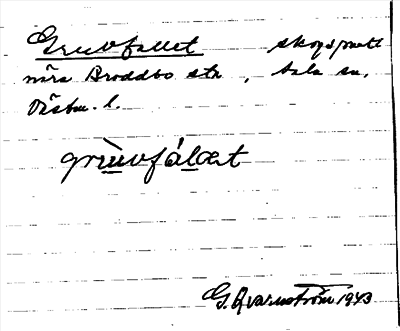 Gruvfallet skogsmark
nära Broddbo stn, Sala sn,
Västm. l.
grùvfálet
G. Qvarnström 1943